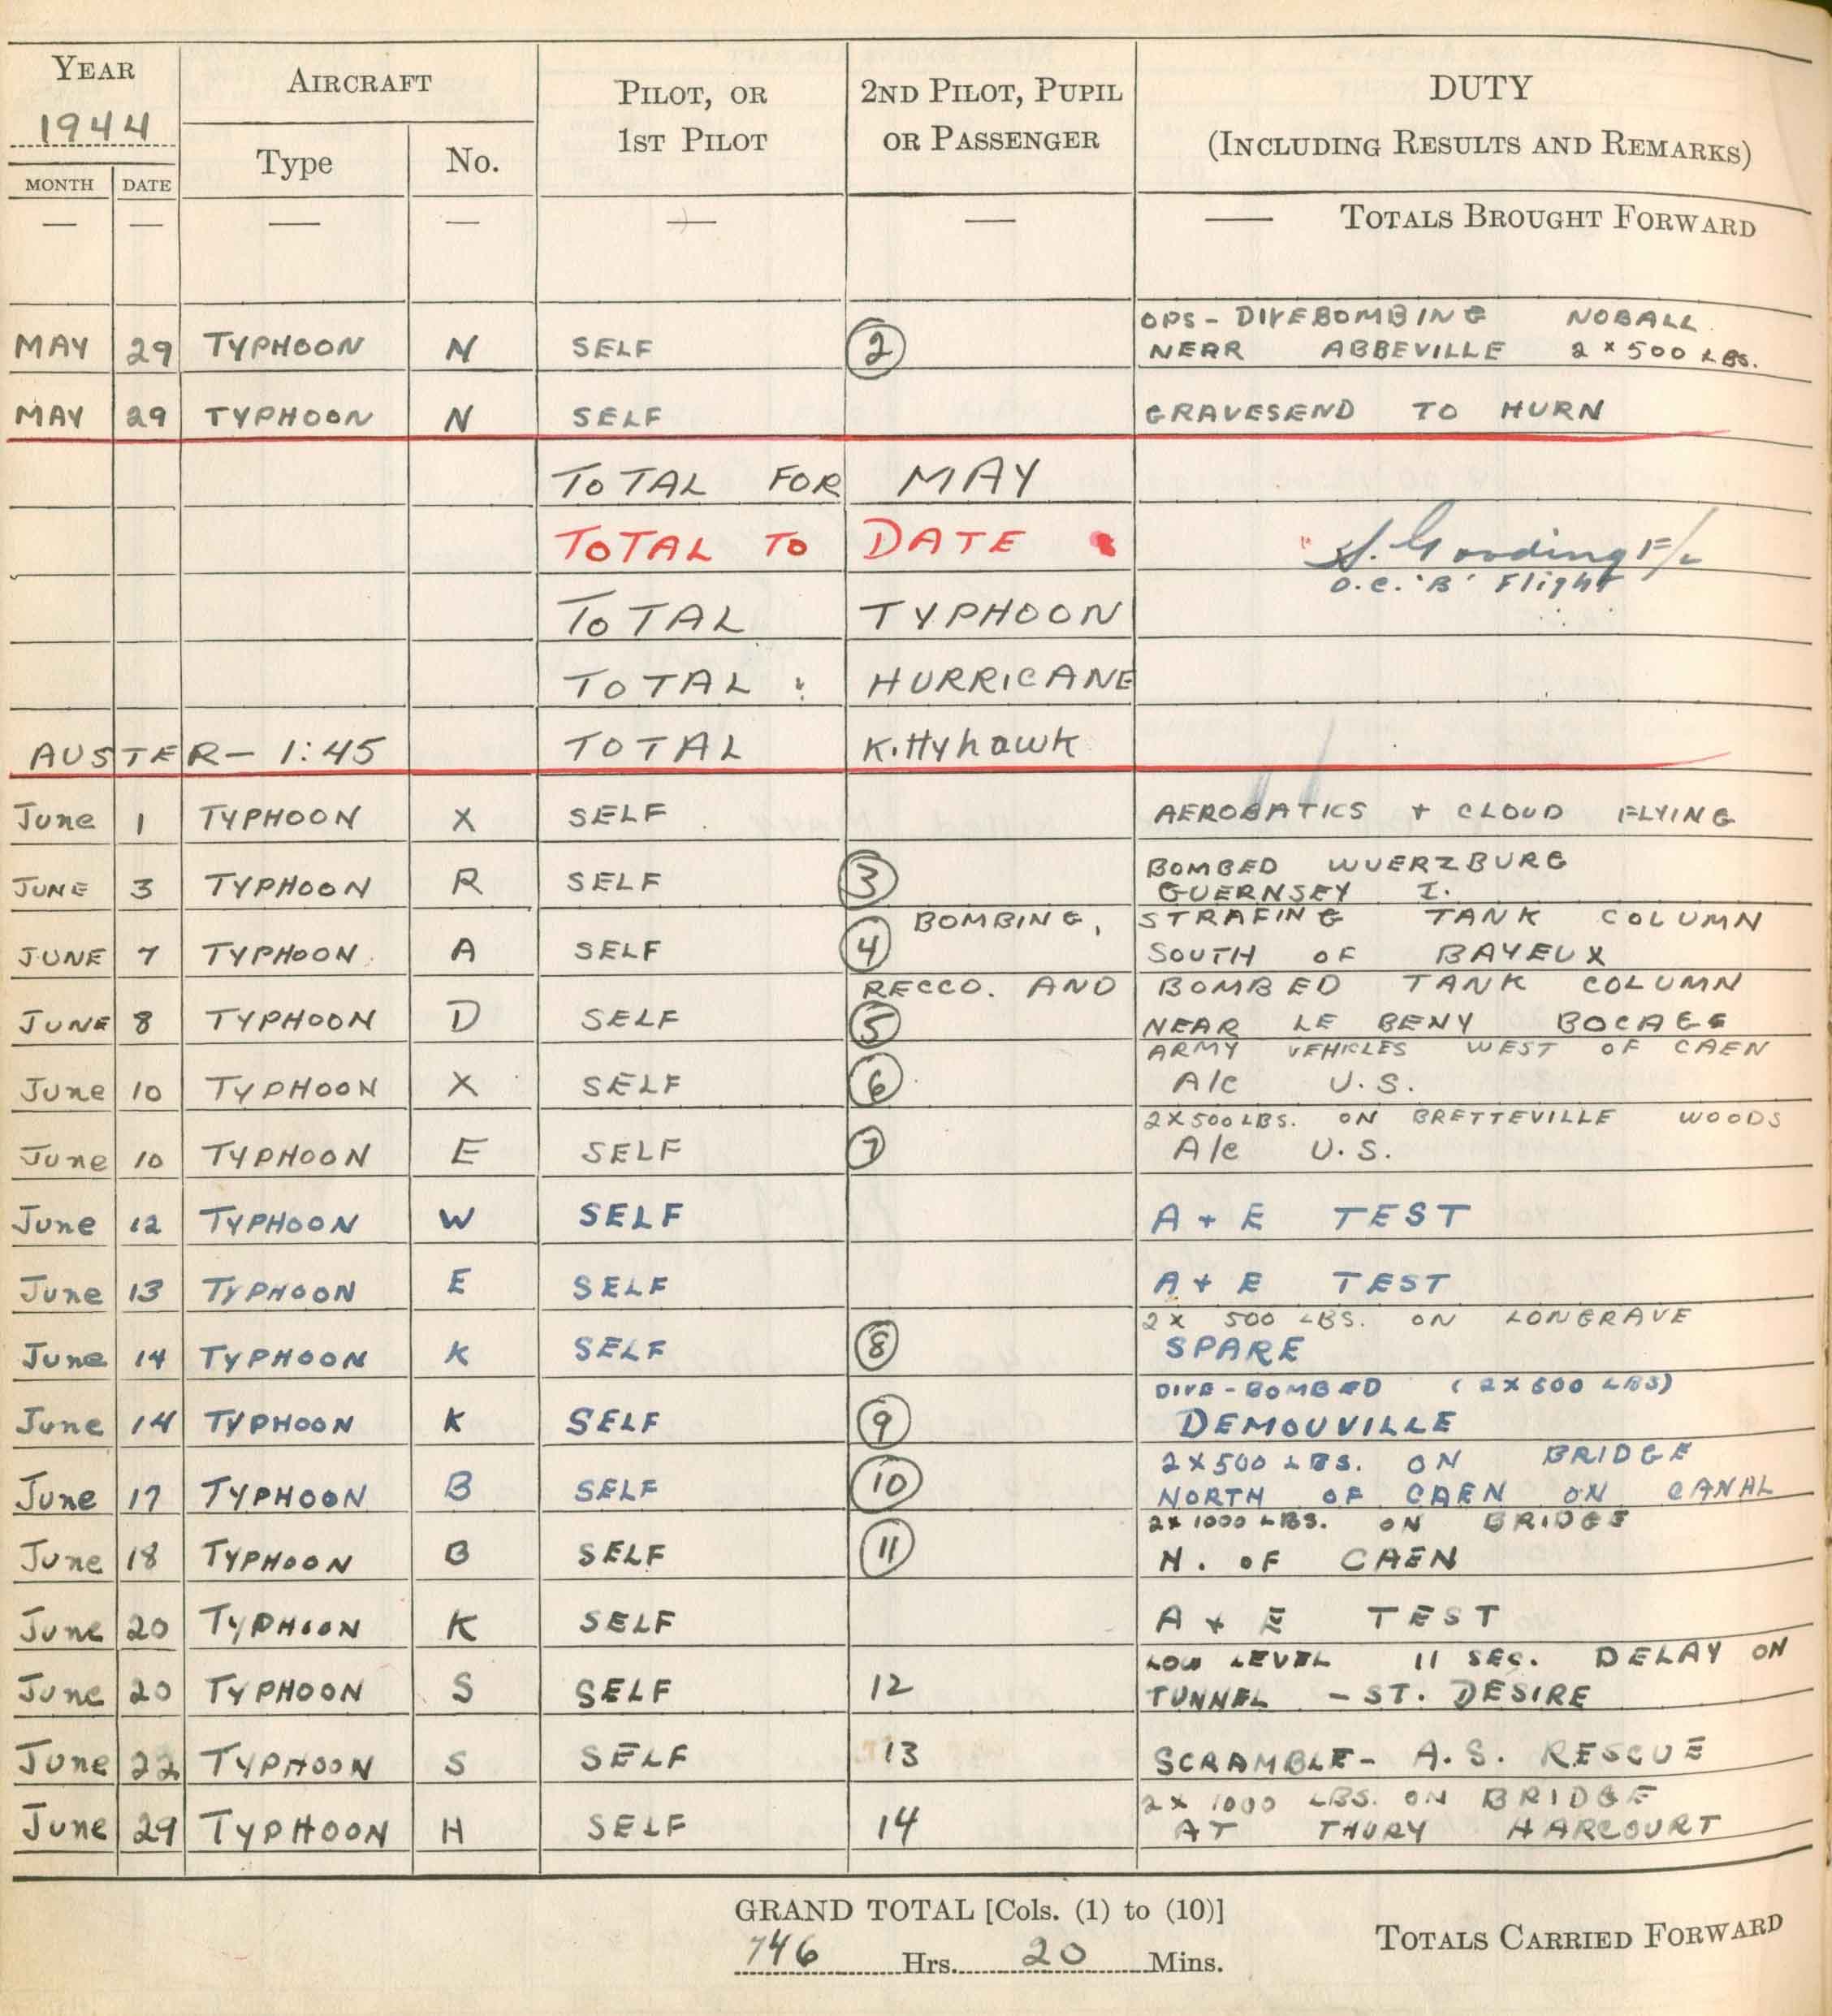 YEAR
1944
AIRCRAFT
PILOT, OR
1ST PILOT
2ND PILOT, PUPIL
OR PASSENGER
DUTY
(INCLUDING RESULTS AND REMARKS)
MONTH DATE Type No.
— — — — — — — TOTALS BROUGHT FORWARD
OPS - DIVEBOMBING NOBALL
MAY 29 TYPHOON N SELF 2 NEAR ABBEVILLE 2 × 500 LBS.
MAY 29 TYPHOON N SELF GRAVESEND TO HURN
TOTAL FOR MAY
TOTAL TO DATE
S. Gooding F/L
O.C. 'B' Flight
TOTAL TYPHOON
TOTAL : HURRICANE
AUSTER - 1:45 TOTAL Kittyhawk
June 1 TYPHOON X SELF AEROBATICS + CLOUD FLYING
BOMBED WUERZBURG
JUNE 3 TYPHOON R SELF 3 GUERNSEY I.
BOMBING, STRAFING TANK COLUMN
JUNE 7 TYPHOON A SELF 4 SOUTH OF BAYEUX
RECCO. AND BOMBED TANK COLUMN
JUNE 8 TYPHOON D SELF 5 NEAR LE BENY BOCAGE
ARMY VEHICLES WEST OF CAEN
June 10 TYPHOON X SELF 6 A/c U.S.
2X500 LBS. ON BRETTEVILLE WOODS
June 10 TYPHOON E SELF 7 A/c U.S.
June 12 TYPHOON W SELF A + E TEST
June 13 TYPHOON E SELF A + E TEST
2X 500 LBS. ON LONGRAVE
June 14 TYPHOON K SELF 8 SPARE
DIVE-BOMBED (2X500 LBS)
June 14 TYPHOON K SELF 9 DEMOUVILLE
2X500 LBS. ON BRIDGE
June 17 TYPHOON B SELF 10 NORTH OF CAEN ON CANAL
2X1000 LBS. ON BRIDGE
June 18 TYPHOON B SELF 11 N. OF CAEN
June 20 TYPHOON K SELF A + E TEST
LOW LEVEL 11 SEC. DELAY ON
June 20 TYPHOON S SELF 12 TUNNEL - ST. DESIRE
June 22 TYPHOON S SELF 13 SCRAMBLE - A.S. RESCUE
2X 1000 LBS. ON BRIDGE
June 29 TYPHOON H SELF 14 AT THURY HARCOURT
GRAND TOTAL [Cols. (1) to (10)]
746 Hrs. 20 Mins.
TOTALS CARRIED FORWARD